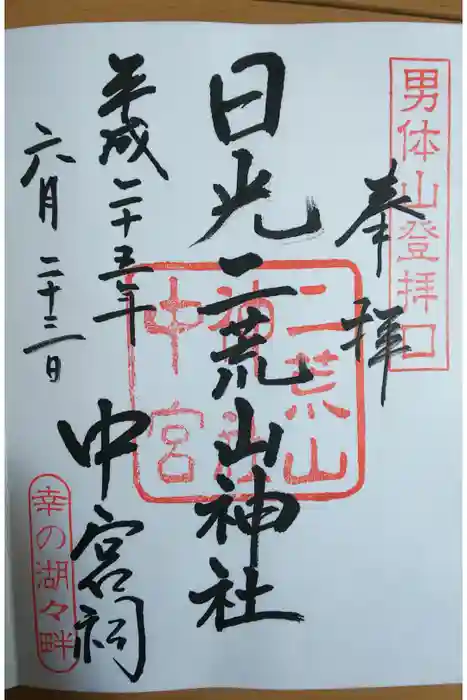 男体山登拝口
奉拝
日光二荒山神社
二荒山
神社
中宮
平成二十五年
中宮祠
六月二十三日
幸の湖々畔